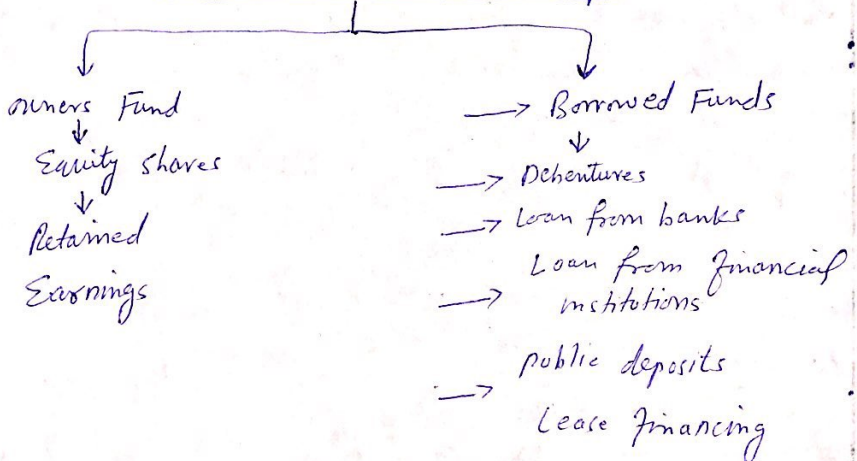 owners Fund
Equity shares
Retained
Earnings
Borrowed Funds
Debentures
Loan from banks
Loan from financial
institutions
public deposits
Lease financing